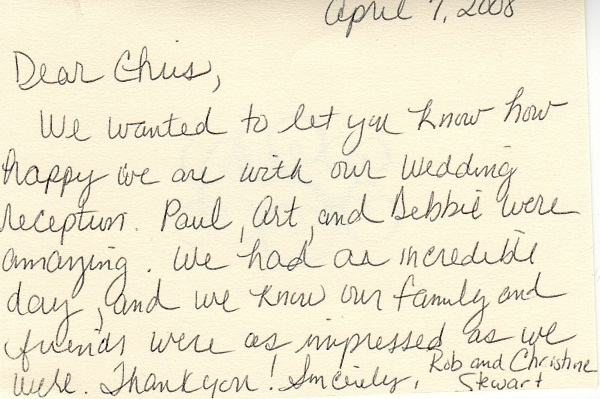 April 7, 2008
Dear Chris,
We wanted to let you know how
happy we are with our wedding
reception. Paul, Art, and Debbie were
amazing. We had an incredible
day, and we know our family and
friends were as impressed as we
were. Thank you! Sincerely, Rob and Christine
Stewart